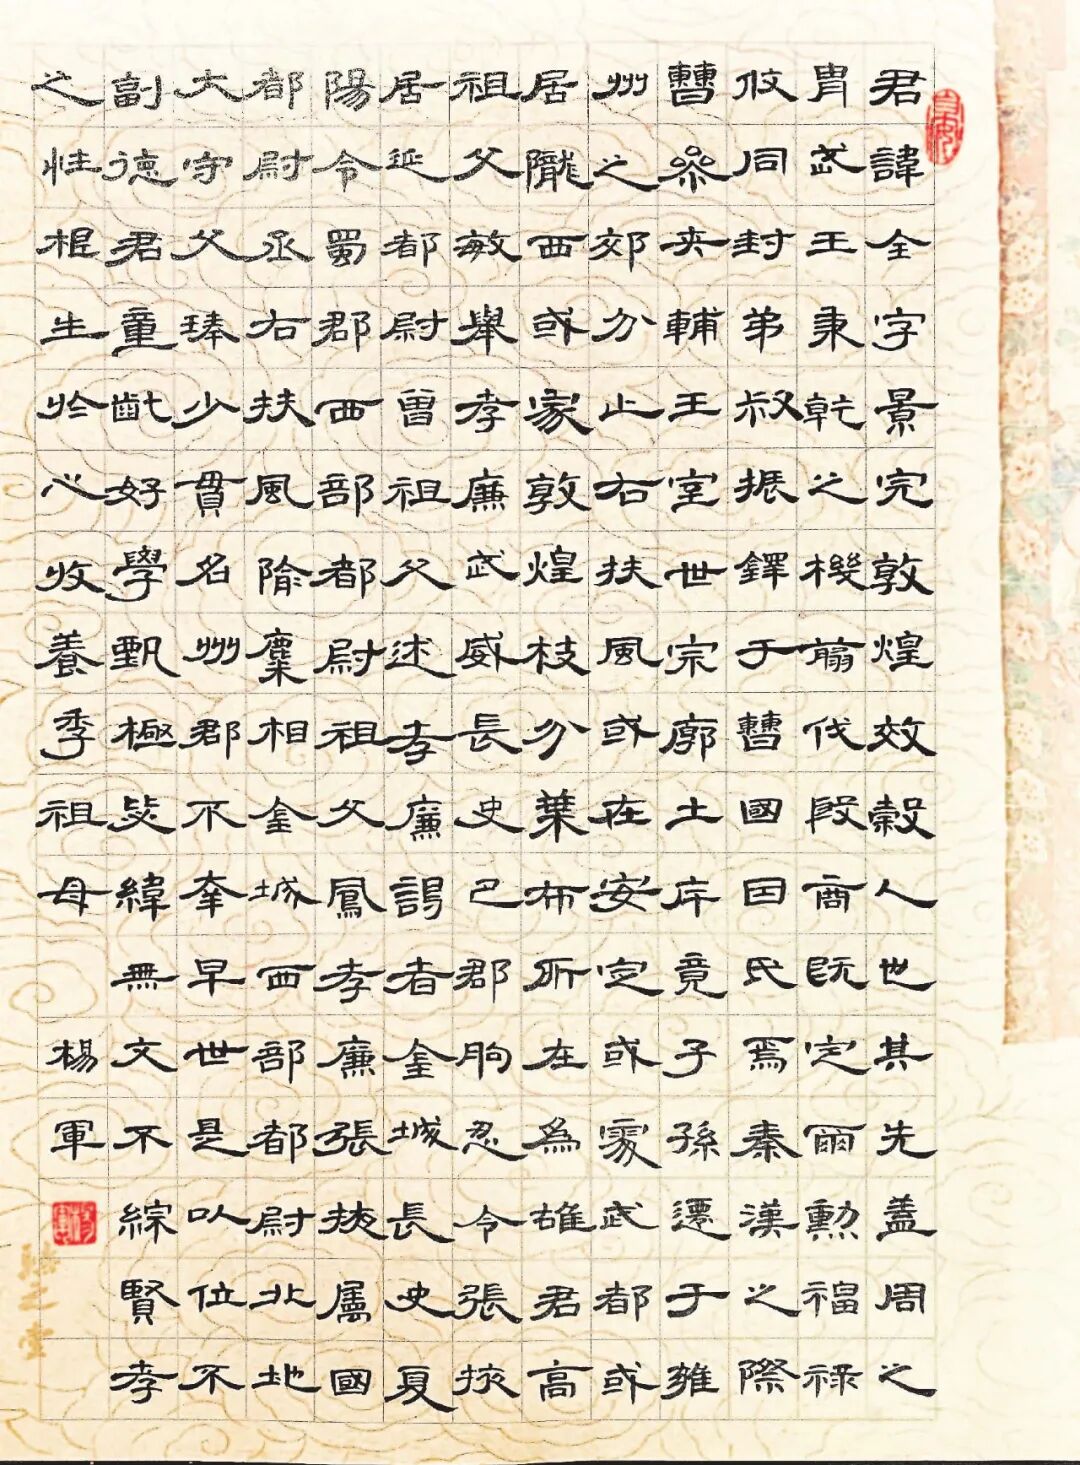 君諱全字景完敦煌效穀人也其先蓋周之
胄武王秉乾之機翦伐殷商既定爾勳福祿
攸同封弟叔振鐸于曹國因氏焉秦漢之際
曹參夾輔王室世宗廓土斥竟子孫遷于雍
州之郊分止右扶風或在安定或處武都或
居隴西或家敦煌枝分葉布所在為雄君高
祖父敏舉孝廉武威長史巴郡朐忍令張掖
居延都尉曾祖父述孝廉謁者金城長史夏
陽令蜀郡西部都尉祖父鳳孝廉張掖屬國
都尉丞右扶風隃麋相金城西部都尉北地
大守父琫少貫名州郡不幸早世是以位不
副德君童齔好學甄極毖緯無文不綜賢孝
之性根生於心收養季祖母 楊軍